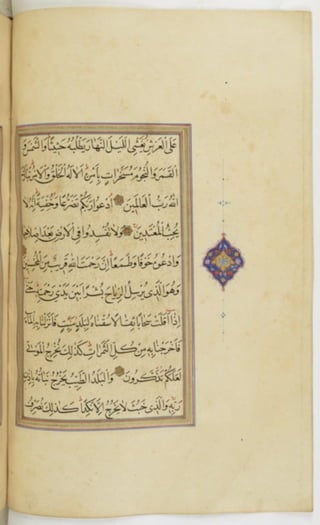 على العرش يغشى الليل النهار يطلبه حثيثا والشمس و
القمر والنجوم مسخرات بامره الا له الخلق والامر تبارك
الله رب العالمين ادعوا ربكم تضرعا وخفية انه لا
يحب المعتدين ولا تفسدوا في الارض بعد اصلاحها
وادعوه خوفا وطمعا ان رحمت الله قريب من المحسنين
وهو الذى يرسل الرياح بشرا بين يدى رحمته حتى
اذا اقلت سحابا ثقالا سقناه لبلد ميت فانزلنا به الماء
فاخرجنا به من كل الثمرات كذلك نخرج الموتى
لعلكم تذكرون والبلد الطيب يخرج نباته باذن
ربه والذى خبث لا يخرج الا نكدا كذلك نصرف